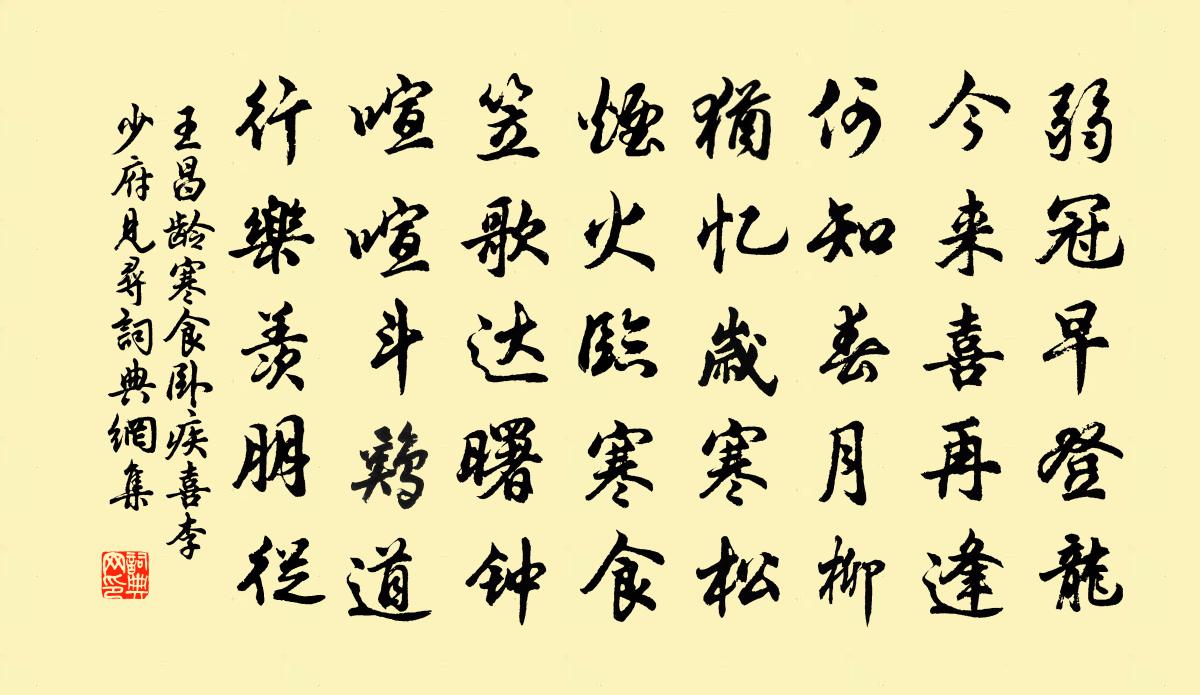 弱冠早登龍
今来喜再逢
何知春月柳
猶忆歲寒松
煙火臨寒食
笙歌达曙钟
喧喧斗鷄道
行樂羨朋從
王昌龄寒食卧疾喜李
少府見尋詞典網集
詞典网印